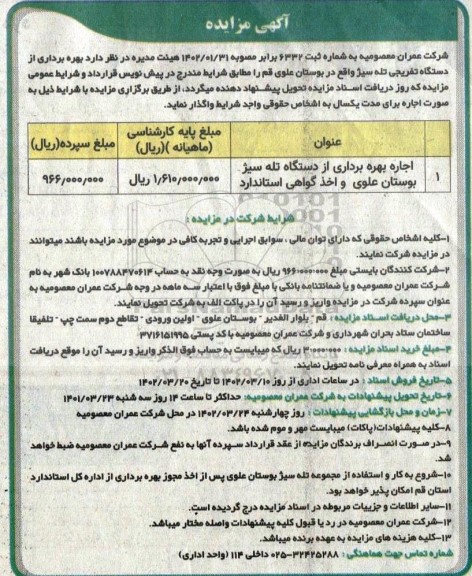 آگهی مزایده
شرکت عمران معصومیه به شماره ثبت ۶۳۳۲ برابر مصوبه ۱۴۰۲/۰۱/۳۱ هیئت مدیره در نظر دارد بهره برداری از
دستگاه تفریحی تله سیژ واقع در بوستان علوی قم را مطابق شرایط مندرج در پیش نویس قرارداد و شرایط عمومی
مزایده که روز دریافت اسناد مزایده تحویل پیشنهاد دهنده میگردد، از طریق برگزاری مزایده با شرایط ذیل به
صورت اجاره برای مدت یکسال به اشخاص حقوقی واجد شرایط واگذار نماید.
عنوان
مبلغ پایه کارشناسی
(ماهیانه )(ریال)
مبلغ سپرده(ریال)
۱
اجاره بهره برداری از دستگاه تله سیژ
بوستان علوی و اخذ گواهی استاندارد
۱/۶۱۰/۰۰۰/۰۰۰ ریال
۹۶۶/۰۰۰/۰۰۰
شرایط شرکت در مزایده :
۱-کلیه اشخاص حقوقی که دارای توان مالی ، سوابق اجرایی و تجربه کافی در موضوع مورد مزایده باشند میتوانند
در مزایده شرکت نمایند.
۲-شرکت کنندگان بایستی مبلغ ۹۶۶٬۰۰۰٬۰۰۰ ریال به صورت وجه نقد به حساب ۱۰۰۷۸۸۴۷۰۶۱۴ بانک شهر به نام
شرکت عمران معصومیه و یا ضمانتنامه بانکی با مبلغ فوق با اعتبار سه ماهه در وجه شرکت عمران معصومیه به
عنوان سپرده شرکت در مزایده واریز و رسید آن را در پاکت الف به شرکت تحویل نمایند.
۳-محل دریافت اسناد مزایده : قم - بلوار الغدیر - بوستان علوی - اولین ورودی - تقاطع دوم سمت چپ - تلفیقا
ساختمان ستاد بحران شهرداری و شرکت عمران معصومیه با کد پستی ۳۷۱۶۱۵۱۹۹۵
۴-مبلغ خرید اسناد مزایده : ۳٬۰۰۰٬۰۰۰ ریال که میبایست به حساب فوق الذکر واریز و رسید آن را موقع دریافت
اسناد به همراه معرفی نامه تحویل نمایند.
۵-تاریخ فروش اسناد : در ساعات اداری از روز ۱۴۰۲/۰۳/۱۰ تا تاریخ ۱۴۰۲/۰۳/۲۰
۶-تاریخ تحویل پیشنهادات به شرکت عمران معصومیه: حداکثر تا ساعت ۱۴ روز سه شنبه ۱۴۰۱/۰۳/۲۳
۷-زمان و محل بازگشایی پیشنهادات : روز چهارشنبه ۱۴۰۲/۰۳/۲۴ در محل شرکت عمران معصومیه
۸-کلیه پیشنهادات(پاکات) میبایست مهر و موم شده باشد.
۹-در صورت انصراف برندگان مزایده از عقد قرارداد سپرده آنها به نفع شرکت عمران معصومیه ضبط خواهد
شد.
۱۰-شروع به کار و استفاده از مجموعه تله سیژ بوستان علوی پس از اخذ مجوز بهره برداری از اداره کل استاندارد
استان قم امکان پذیر خواهد بود.
۱۱-سایر اطلاعات و جزییات مربوطه در اسناد مزایده درج گردیده است.
۱۲-شرکت عمران معصومیه در رد یا قبول کلیه پیشنهادات واصله مختار میباشد.
۱۳-کلیه هزینه های مزایده به عهده برنده میباشد.
شماره تماس جهت هماهنگی : ۳۲۴۲۵۲۸۸-۰۲۵ داخلی ۱۱۴ (واحد اداری)